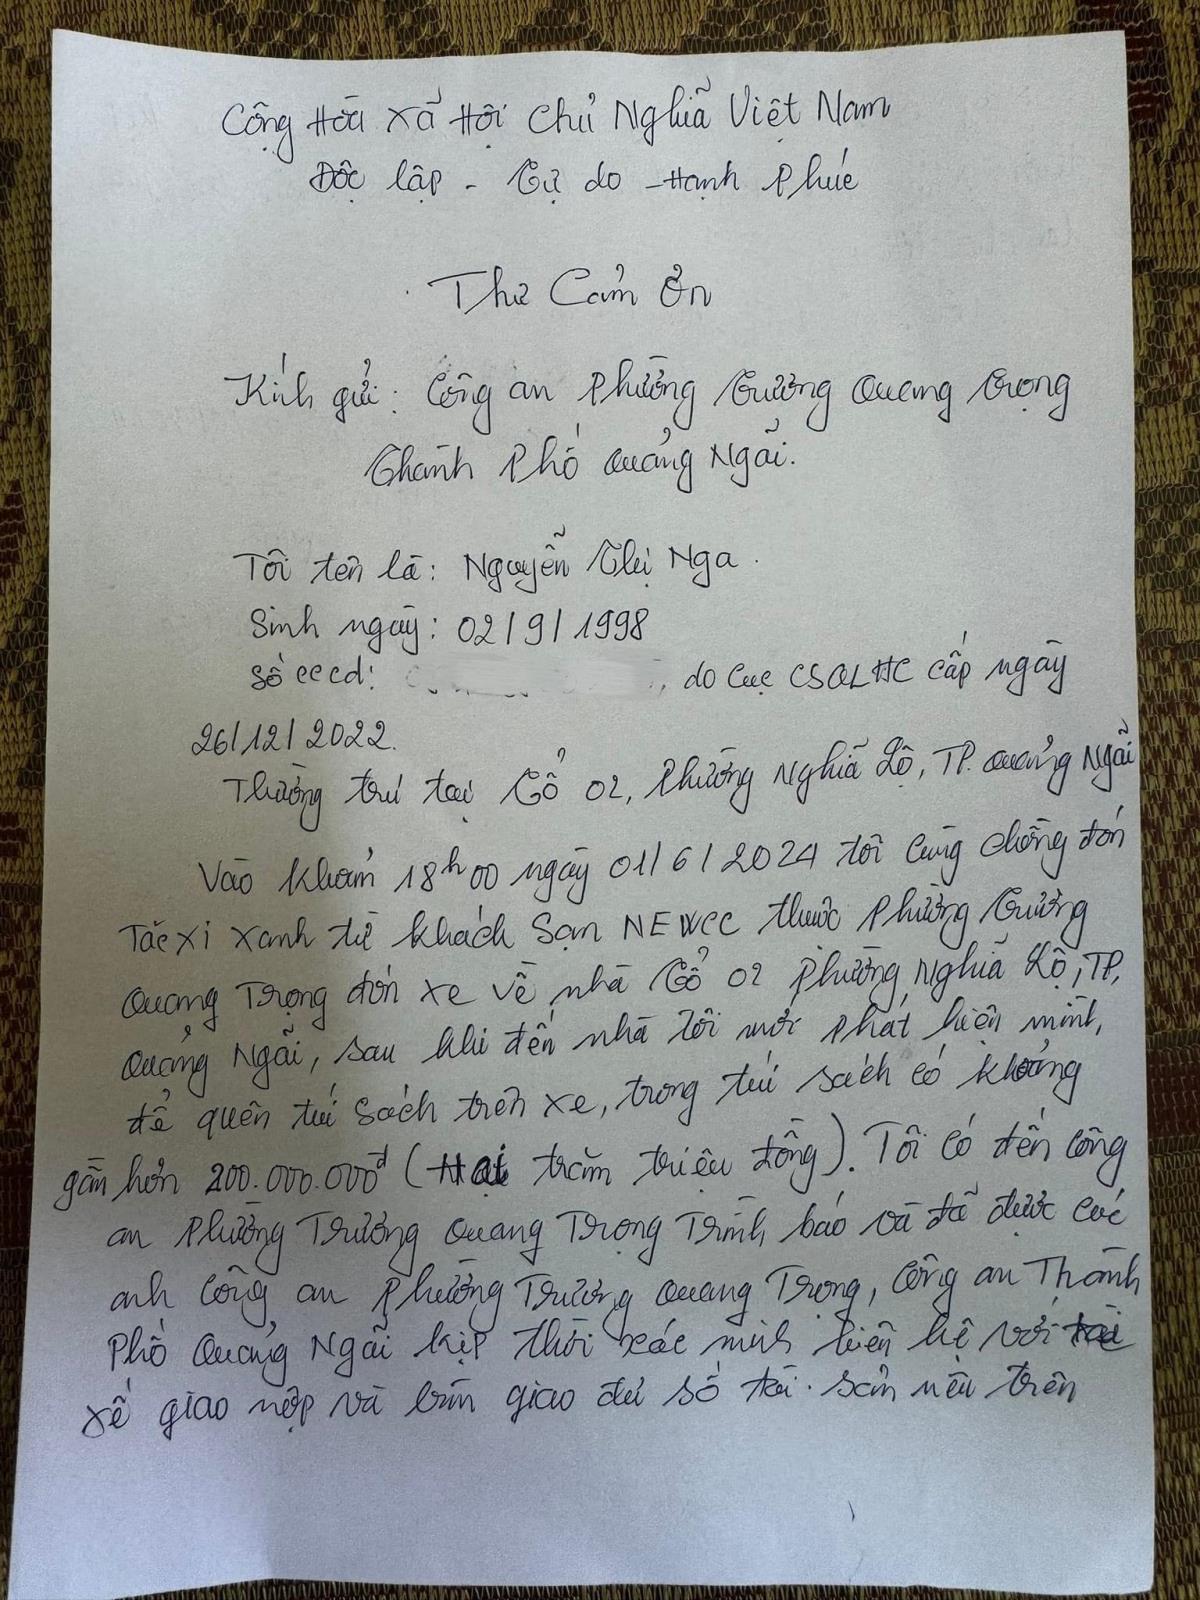 Cộng Hòa Xã Hội Chủ Nghĩa Việt Nam
Độc lập - Tự do - Hạnh Phúc
Thư Cảm Ơn
Kính gửi: Công an Phường Trương Quang Trọng
Thành Phố Quảng Ngãi.
Tôi tên là: Nguyễn Thị Nga.
Sinh ngày: 02/9/1998
Số cccd: , do Cục CSQLHC cấp ngày
26/12/2022.
Thường trú tại Tổ 02, Phường Nghĩa Lộ, TP. Quảng Ngãi
Vào khoản 18h00 ngày 01/6/2024 tôi cùng chồng đón
Tăc xi xanh từ khách sạn NEWCC thuộc Phường Trương
Quang Trọng đón xe về nhà Tổ 02 Phường Nghĩa Lộ, TP,
Quảng Ngãi, sau khi đến nhà tôi mới phát hiện mình,
để quên túi sách trên xe, trong túi sách có khoảng
gần hơn 200.000.000đ (Hai trăm triệu đồng). Tôi có đến công
an Phường Trương Quang Trọng Trình báo và đã được các
anh Công an Phường Trương Quang Trọng, Công an Thành
Phố Quảng Ngãi kịp thời xác minh liên hệ với tài
xế giao nộp và bàn giao đủ số tài sản nêu trên